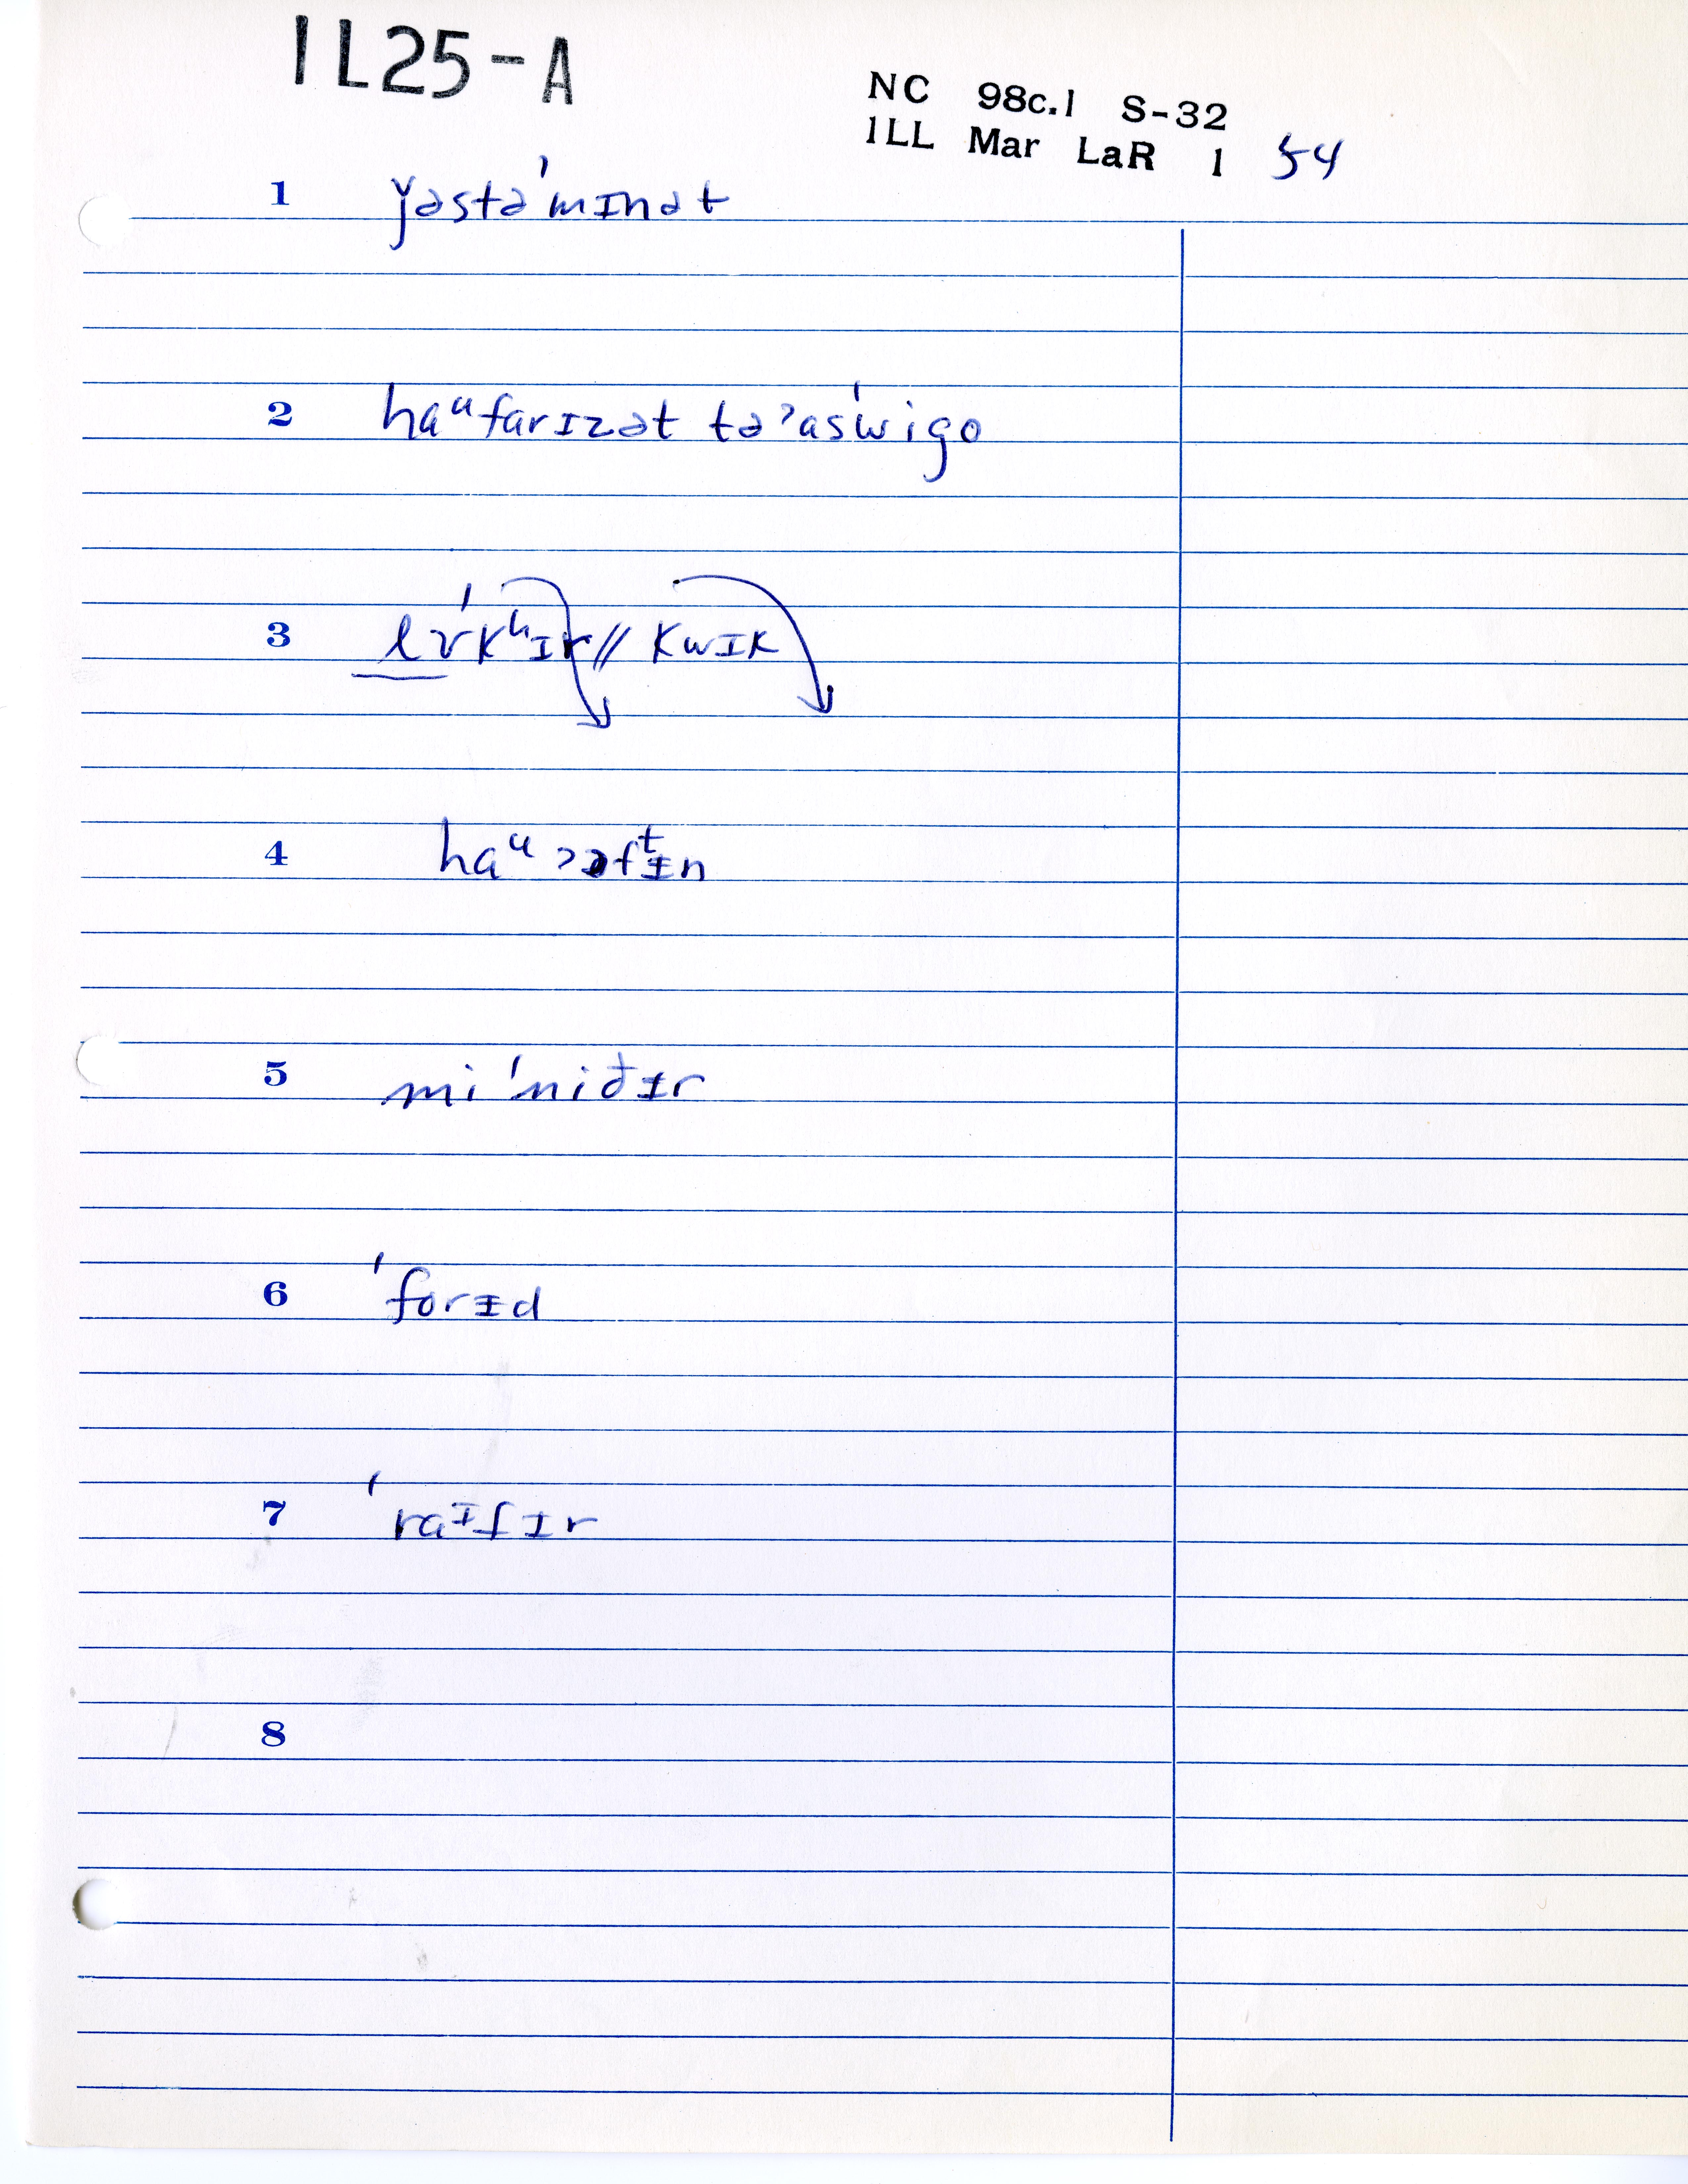 1L25-A
NC 98c.1 S-32
1LL Mar LaR 1 54
1 yəstə'mɪnət
2 haᵘfarɪzət tə ʔas'wigo
3 lʊkʰɪr // kwɪk
4 haᵘ ʔəfᵗɪn
5 mi 'niđɨr
6 'forɨd
7 'raᶦfɪr
8